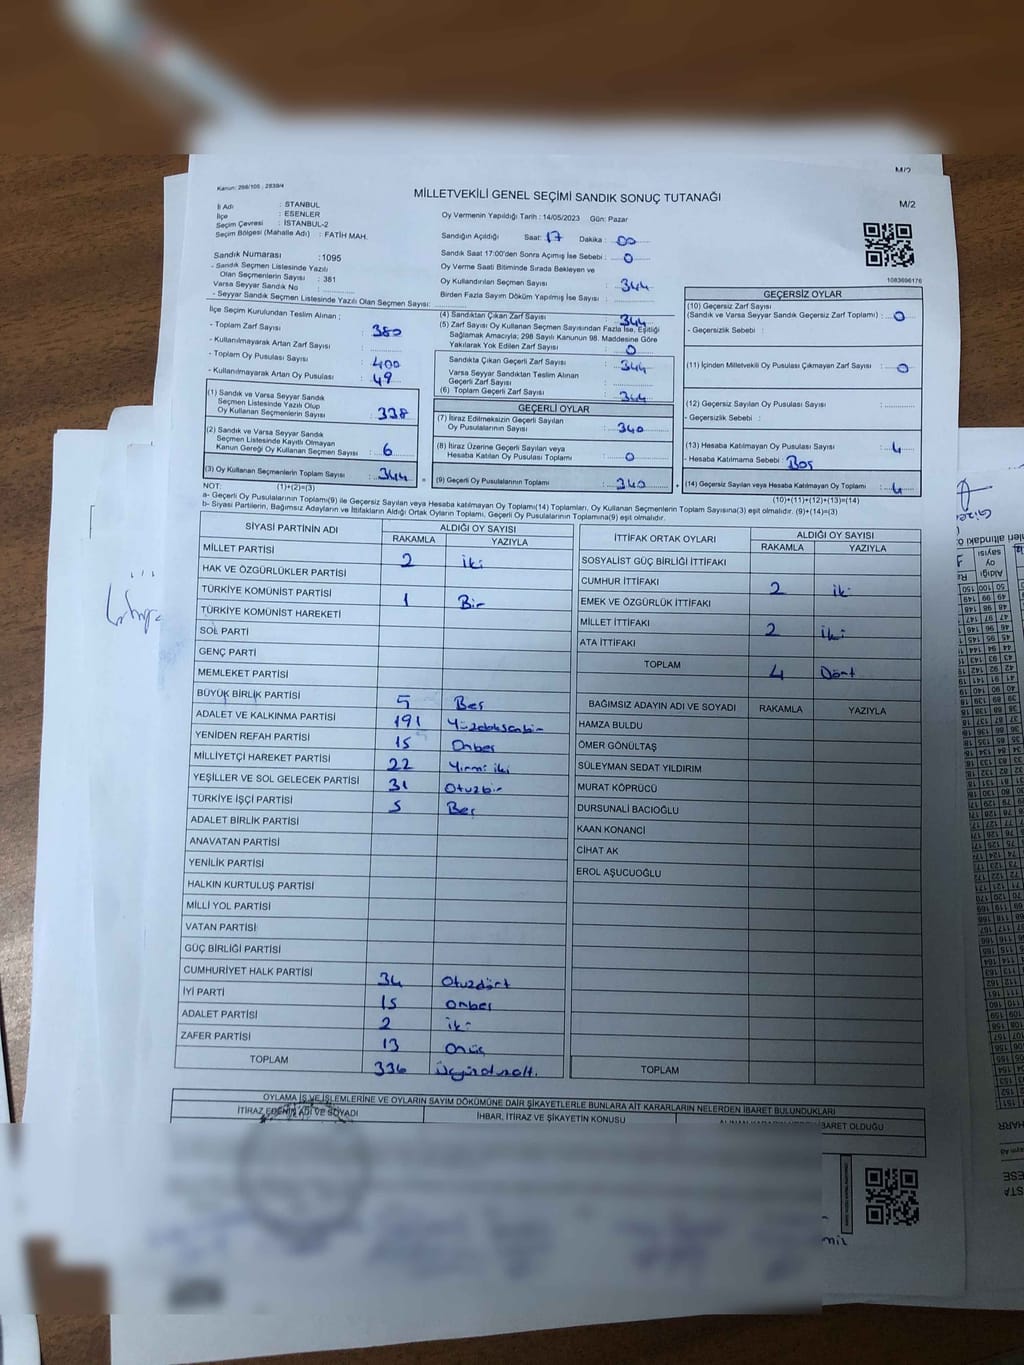 M/2
Kanun: 298/105 , 2839/4
MİLLETVEKİLİ GENEL SEÇİMİ SANDIK SONUÇ TUTANAĞI
M/2
İl Adı : İSTANBUL
İlçe : ESENLER
Seçim Çevresi : İSTANBUL-2
Seçim Bölgesi (Mahalle Adı) : FATİH MAH.
Oy Vermenin Yapıldığı Tarih : 14/05/2023 Gün: Pazar
Sandığın Açıldığı Saat: 17 Dakika : 00
Sandık Saat 17:00'den Sonra Açılmış İse Sebebi : 0
Oy Verme Saati Bitiminde Sırada Bekleyen ve
Oy Kullandırılan Seçmen Sayısı : 344
Birden Fazla Sayım Döküm Yapılmış İse Sayısı :
Sandık Numarası : 1095
- Sandık Seçmen Listesinde Yazılı
Olan Seçmenlerin Sayısı : 381
Varsa Seyyar Sandık No :
- Seyyar Sandık Seçmen Listesinde Yazılı Olan Seçmen Sayısı:
1083696176
İlçe Seçim Kurulundan Teslim Alınan ;
- Toplam Zarf Sayısı : 380
- Kullanılmayarak Artan Zarf Sayısı :
- Toplam Oy Pusulası Sayısı : 400
- Kullanılmayarak Artan Oy Pusulası : 49
(1) Sandık ve Varsa Seyyar Sandık
Seçmen Listesinde Yazılı Olup
Oy Kullanan Seçmenlerin Sayısı : 338
(2) Sandık ve Varsa Seyyar Sandık
Seçmen Listesinde Kayıtlı Olmayan
Kanun Gereği Oy Kullanan Seçmen Sayısı : 6
(3) Oy Kullanan Seçmenlerin Toplam Sayısı : 344
(4) Sandıktan Çıkan Zarf Sayısı : 344
(5) Zarf Sayısı Oy Kullanan Seçmen Sayısından Fazla İse, Eşitliği
Sağlamak Amacıyla; 298 Sayılı Kanunun 98. Maddesine Göre
Yakılarak Yok Edilen Zarf Sayısı : 0
Sandıkta Çıkan Geçerli Zarf Sayısı : 344
Varsa Seyyar Sandıktan Teslim Alınan
Geçerli Zarf Sayısı :
(6) Toplam Geçerli Zarf Sayısı : 344
GEÇERLİ OYLAR
(7) İtiraz Edilmeksizin Geçerli Sayılan
Oy Pusulalarının Sayısı : 340
(8) İtiraz Üzerine Geçerli Sayılan veya
Hesaba Katılan Oy Pusulası Toplamı : 0
(9) Geçerli Oy Pusulalarının Toplamı : 340
GEÇERSİZ OYLAR
(10) Geçersiz Zarf Sayısı
(Sandık ve Varsa Seyyar Sandık Geçersiz Zarf Toplamı) : 0
- Geçersizlik Sebebi :
(11) İçinden Milletvekili Oy Pusulası Çıkmayan Zarf Sayısı : 0
(12) Geçersiz Sayılan Oy Pusulası Sayısı :
- Geçersizlik Sebebi :
(13) Hesaba Katılmayan Oy Pusulası Sayısı : 4
- Hesaba Katılmama Sebebi : Boş
(14) Geçersiz Sayılan veya Hesaba Katılmayan Oy Toplamı : 4
NOT: (1)+(2)=(3)
(10)+(11)+(12)+(13)=(14)
a- Geçerli Oy Pusulalarının Toplamı(9) ile Geçersiz Sayılan veya Hesaba katılmayan Oy Toplamı(14) Toplamları, Oy Kullanan Seçmenlerin Toplam Sayısına(3) eşit olmalıdır. (9)+(14)=(3)
b- Siyasi Partilerin, Bağımsız Adayların ve İttifakların Aldığı Ortak Oyların Toplamı, Geçerli Oy Pusulalarının Toplamına(9) eşit olmalıdır.
SİYASİ PARTİNİN ADI ALDIĞI OY SAYISI
RAKAMLA YAZIYLA
MİLLET PARTİSİ 2 iki
HAK VE ÖZGÜRLÜKLER PARTİSİ
TÜRKİYE KOMÜNİST PARTİSİ 1 Bir
TÜRKİYE KOMÜNİST HAREKETİ
SOL PARTİ
GENÇ PARTİ
MEMLEKET PARTİSİ
BÜYÜK BİRLİK PARTİSİ 5 Beş
ADALET VE KALKINMA PARTİSİ 191 Yüzdoksanbir
YENİDEN REFAH PARTİSİ 15 Onbeş
MİLLİYETÇİ HAREKET PARTİSİ 22 Yirmi iki
YEŞİLLER VE SOL GELECEK PARTİSİ 31 Otuzbir
TÜRKİYE İŞÇİ PARTİSİ 5 Beş
ADALET BİRLİK PARTİSİ
ANAVATAN PARTİSİ
YENİLİK PARTİSİ
HALKIN KURTULUŞ PARTİSİ
MİLLİ YOL PARTİSİ
VATAN PARTİSİ
GÜÇ BİRLİĞİ PARTİSİ
CUMHURİYET HALK PARTİSİ 34 Otuzdört
İYİ PARTİ 15 onbeş
ADALET PARTİSİ 2 iki
ZAFER PARTİSİ 13 Onüç
TOPLAM 336 Üçyüzotuzalt.
İTTİFAK ORTAK OYLARI ALDIĞI OY SAYISI
RAKAMLA YAZIYLA
SOSYALİST GÜÇ BİRLİĞİ İTTİFAKI
CUMHUR İTTİFAKI 2 iki
EMEK VE ÖZGÜRLÜK İTTİFAKI
MİLLET İTTİFAKI 2 iki
ATA İTTİFAKI
TOPLAM 4 Dört
BAĞIMSIZ ADAYIN ADI VE SOYADI RAKAMLA YAZIYLA
HAMZA BULDU
ÖMER GÖNÜLTAŞ
SÜLEYMAN SEDAT YILDIRIM
MURAT KÖPRÜCÜ
DURSUNALİ BACIOĞLU
KAAN KONANCİ
CİHAT AK
EROL AŞUCUOĞLU
TOPLAM
OYLAMA İŞ VE İŞLEMLERİNE VE OYLARIN SAYIM DÖKÜMÜNE DAİR ŞİKAYETLERLE BUNLARA AİT KARARLARIN NELERDEN İBARET BULUNDUKLARI
İTİRAZ EDENİN ADI VE SOYADI İHBAR, İTİRAZ VE ŞİKAYETİN KONUSU